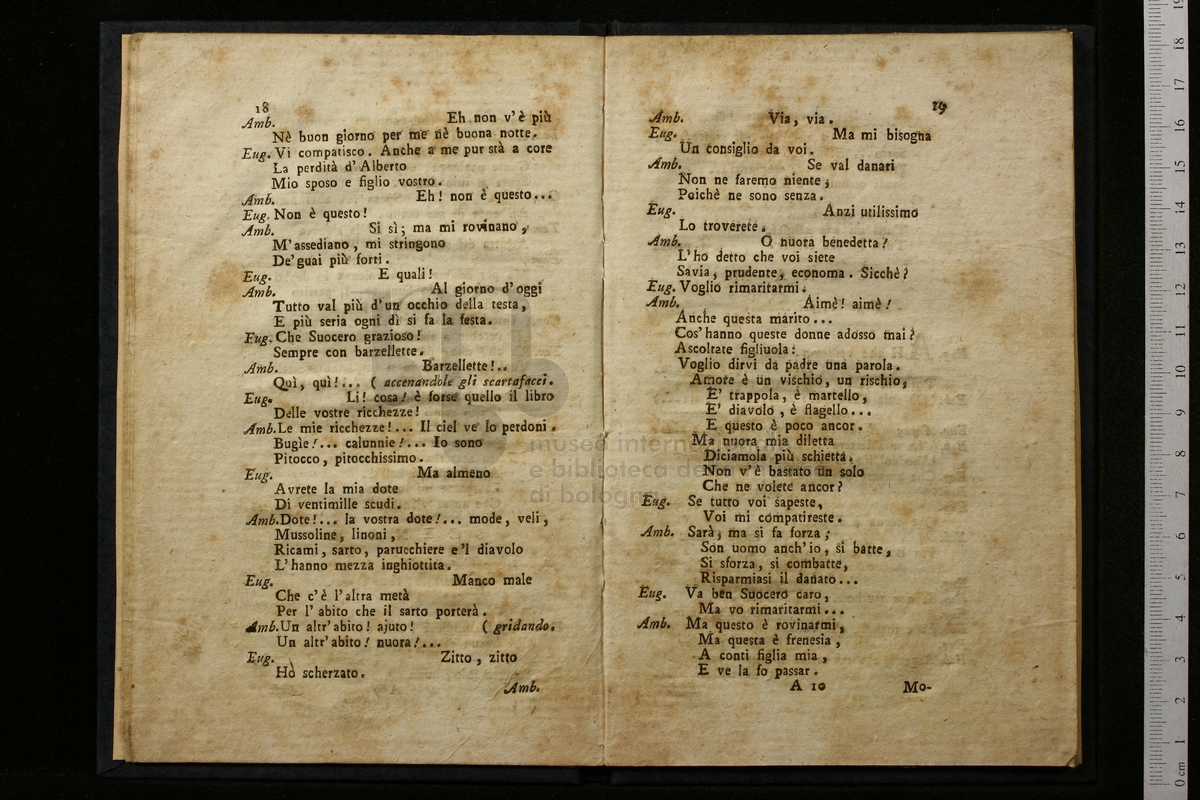 18
Amb. Eh non v'è più
Nè buon giorno per me nè buona notte.
Eug. Vi compatisco. Anche a me pur stà a core
La perdità d'Alberto
Mio sposo e figlio vostro.
Amb. Eh! non è questo...
Eug. Non è questo!
Amb. Si sì; ma mi rovinano,
M'assediano, mi stringono
De'guai più forti.
Eug. E quali!
Amb. Al giorno d'oggi
Tutto val più d'un occhio della testa,
E più seria ogni dì si fa la festa.
Eug. Che Suocero grazioso!
Sempre con barzellette.
Amb. Barzellette!..
Quì, quì!... ( accenandole gli scartafacci.
Eug. Li! cosa! è forse quello il libro
Delle vostre ricchezze!
Amb. Le mie ricchezze!... Il ciel ve lo perdoni.
Bugìe!... calunnie!... Io sono
Pitocco, pitocchissimo.
Eug. Ma almeno
Avrete la mia dote
Di ventimille scudi.
Amb. Dote!... la vostra dote!... mode, veli,
Mussoline, linoni,
Ricami, sarto, parucchiere e'l diavolo
L'hanno mezza inghiottita.
Eug. Manco male
Che c'è l'altra metà
Per l'abito che il sarto porterà.
Amb. Un altr'abito! ajuto! ( gridando.
Un altr'abito! nuora!...
Eug. Zitto, zitto
Hò scherzato.
Amb.
19
Amb. Via, via.
Eug. Ma mi bisogna
Un consiglio da voi.
Amb. Se val danari
Non ne faremo niente;
Poichè ne sono senza.
Eug. Anzi utilissimo
Lo troverete.
Amb. O nuora benedetta!
L'ho detto che voi siete
Savia, prudente, economa. Sicchè?
Eug. Voglio rimaritarmi.
Amb. Aimè! aimè!
Anche questa marito...
Cos'hanno queste donne adosso mai?
Ascoltate figliuola:
Voglio dirvi da padre una parola.
Amore è un vischio, un rischio,
E' trappola, è martello,
E' diavolo, è flagello...
E questo è poco ancor.
Ma nuora mia diletta
Diciamola più schietta.
Non v'è bastato un solo
Che ne volete ancor?
Eug. Se tutto voi sapeste,
Voi mi compatireste.
Amb. Sarà; ma si fa forza;
Son uomo anch'io, si batte,
Si sforza, si combatte,
Risparmiasi il danato...
Eug. Va ben Suocero caro,
Ma vo rimaritarmi...
Amb. Ma questo è rovinarmi,
Ma questa è frenesia,
A conti figlia mia,
E ve la fo passar.
A 10 Mo-
museo intern
e biblioteca de
di bologn
0 cm 1 2 3 4 5 6 7 8 9 10 11 12 13 14 15 16 17 18 19